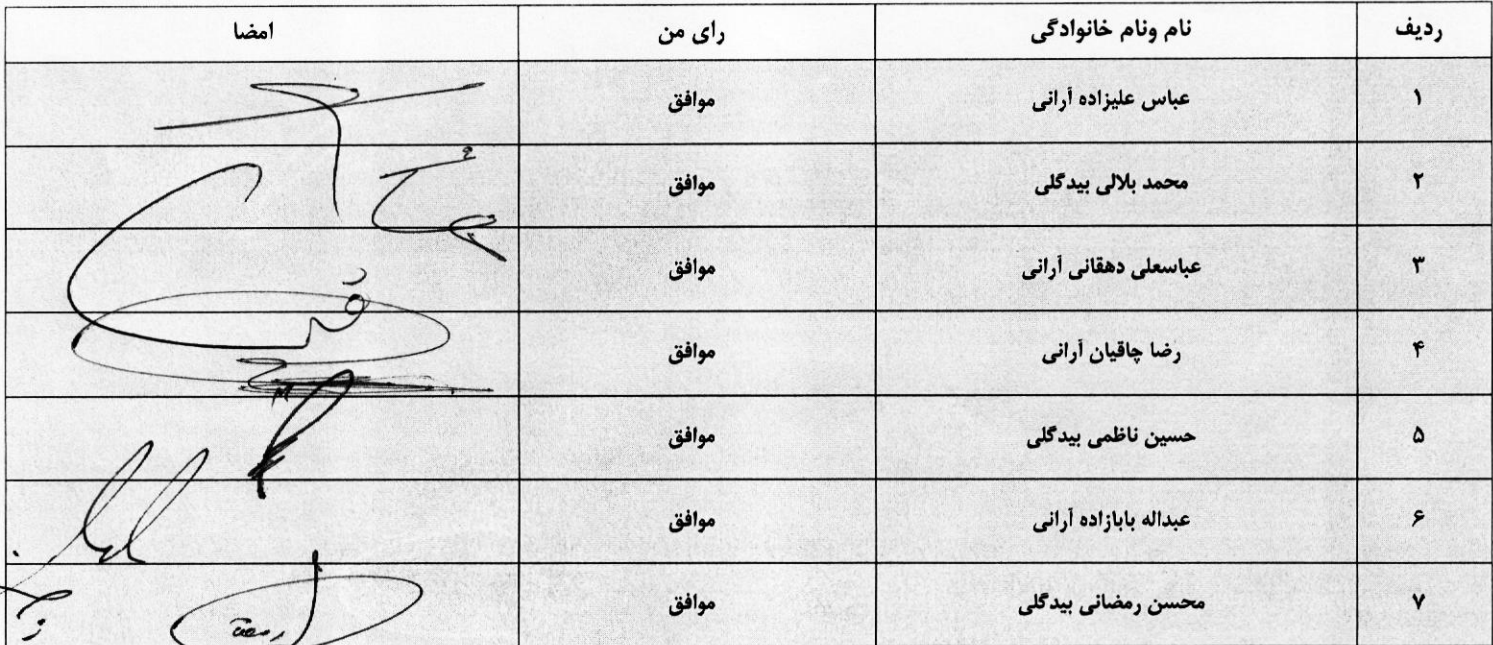 ردیف نام ونام خانوادگی رای من امضا
۱ عباس علیزاده آرانی موافق
۲ محمد بلالی بیدگلی موافق
۳ عباسعلی دهقانی آرانی موافق
۴ رضا چاقیان آرانی موافق
۵ حسین ناظمی بیدگلی موافق
۶ عبداله بابازاده آرانی موافق
۷ محسن رمضانی بیدگلی موافق